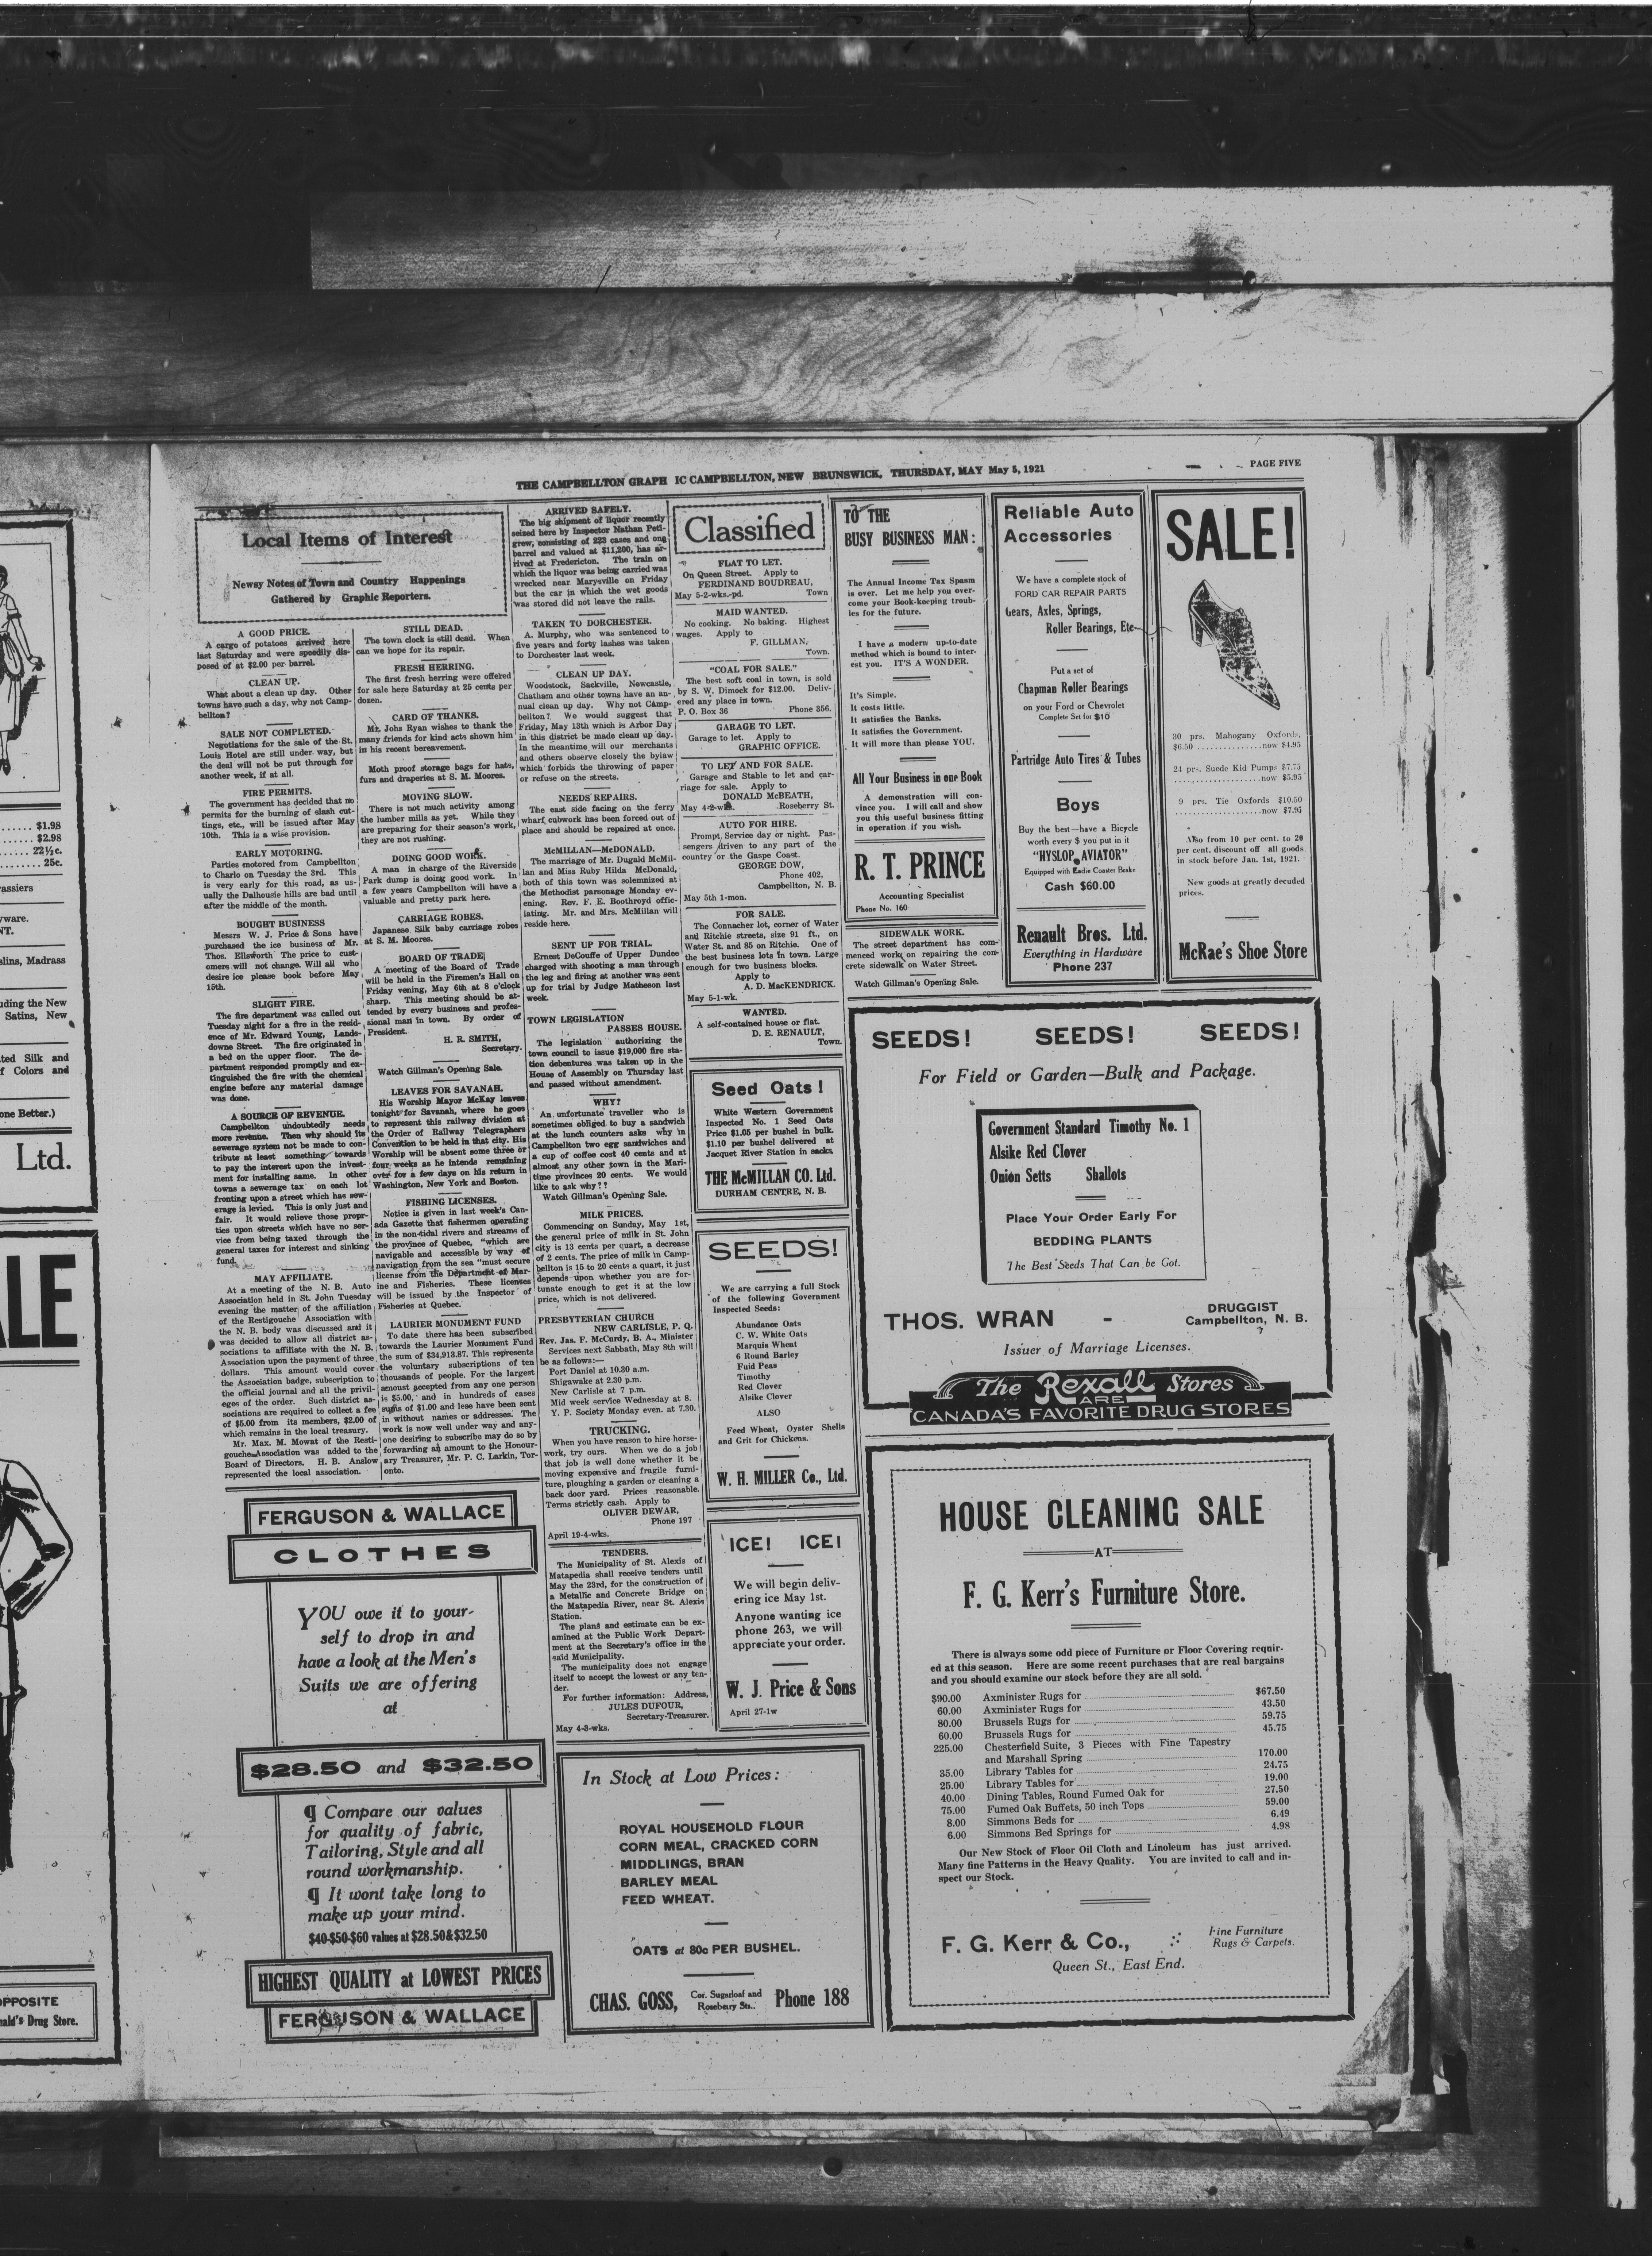 THE CAMPBELLTON GRAPH IC CAMPBELLTON, NEW BRUNSWICK, THURSDAY, MAY May 5, 1921
PAGE FIVE
Local Items of Interest
Newsy Notes of Town and Country Happenings
Gathered by Graphic Reporters.
A GOOD PRICE.
A cargo of potatoes arrived here
last Saturday and were speedily dis-
posed of at $2.00 per barrel.
CLEAN UP.
What about a clean up day. Other
towns have such a day, why not Camp-
bellton?
SALE NOT COMPLETED.
Negotiations for the sale of the St.
Louis Hotel are still under way, but
the deal will not be put through for
another week, if at all.
FIRE PERMITS.
The government has decided that no
permits for the burning of slash cut-
tings, etc., will be issued after May
10th. This is a wise provision.
EARLY MOTORING.
Parties motored from Campbellton
to Charlo on Tuesday the 3rd. This
is very early for this road, as us-
ually the Dalhousie hills are bad until
after the middle of the month.
BOUGHT BUSINESS
Messrs W. J. Price & Sons have
purchased the ice business of Mr.
Thos. Ellsworth The price to cust-
omers will not change. Will all who
desire ice please book before May
15th.
SLIGHT FIRE.
The fire department was called out
Tuesday night for a fire in the resid-
ence of Mr. Edward Young, Lans-
downe Street. The fire originated in
a bed on the upper floor. The de-
partment responded promptly and ex-
tinguished the fire with the chemical
engine before any material damage
was done.
A SOURCE OF REVENUE.
Campbellton undoubtedly needs
more revenue. Then why should its
sewerage system not be made to con-
tribute at least something towards
to pay the interest upon the invest-
ment for installing same. In other
towns a sewerage tax on each lot
fronting upon a street which has sew-
erage is levied. This is only just and
fair. It would relieve those propr-
ties upon streets which have no ser-
vice from being taxed through the
general taxes for interest and sinking
fund.
MAY AFFILIATE.
At a meeting of the N. B. Auto
Association held in St. John Tuesday
evening the matter of the affiliation
of the Restigouche Association with
the N. B. body was discussed and it
was decided to allow all district as-
sociations to affiliate with the N. B.
Association upon the payment of three
dollars. This amount would cover
the Association badge, subscription to
the official journal and all the privil-
eges of the order. Such district as-
sociations are required to collect a fee
of $5.00 from its members, $2.00 of
which remains in the local treasury.
Mr. Max. M. Mowat of the Resti-
gouche Association was added to the
Board of Directors. H. B. Anslow
represented the local association.
STILL DEAD.
The town clock is still dead. When
can we hope for its repair.
FRESH HERRING.
The first fresh herring were offered
for sale here Saturday at 25 cents per
dozen.
CARD OF THANKS.
Mr. Johs Ryan wishes to thank the
many friends for kind acts shown him
in his recent bereavement.
Moth proof storage bags for hats,
furs and draperies at S. M. Moores.
MOVING SLOW.
There is not much activity among
the lumber mills as yet. While they
are preparing for their season's work,
they are not rushing.
DOING GOOD WORK.
A man in charge of the Riverside
Park dump is doing good work. In
a few years Campbellton will have a
valuable and pretty park here.
CARRIAGE ROBES.
Japanese Silk baby carriage robes
at S. M. Moores.
BOARD OF TRADE
A meeting of the Board of Trade
will be held in the Firemen's Hall on
Friday vening, May 6th at 8 o'clock
sharp. This meeting should be at-
tended by every business and profes-
sional man in town. By order of
President.
H. R. SMITH,
Secretary.
Watch Gillman's Opening Sale.
LEAVES FOR SAVANAH.
His Worship Mayor McKay leaves
tonight for Savanah, where he goes
to represent this railway division at
the Order of Railway Telegraphers
Convention to be held in that city. His
Worship will be absent some three or
four weeks as he intends remaining
over for a few days on his return in
Washington, New York and Boston.
FISHING LICENSES.
Notice is given in last week's Can-
ada Gazette that fishermen operating
in the non-tidal rivers and streams of
the province of Quebec, "which are
navigable and accessible by way of
navigation from the sea "must secure
license from the Department of Mar-
ine and Fisheries. These licenses
will be issued by the Inspector of
Fisheries at Quebec.
LAURIER MONUMENT FUND
To date there has been subscribed
towards the Laurier Monument Fund
the sum of $34,913.87. This represents
the voluntary subscriptions of ten
thousands of people. For the largest
amoust accepted from any one person
is $5.00, and in hundreds of cases
sums of $1.00 and lese have been sent
in without names or addresses. The
work is now well under way and any-
one desiring to subscribe may do so by
forwarding an amount to the Honour-
ary Treasurer, Mr. P. C. Larkin, Tor-
onto.
ARRIVED SAFELY.
The big shipment of liquor recently
seized here by Inspector Nathan Peti-
grew, consisting of 223 cases and one
barrel and valued at $11,200, has ar-
rived at Fredericton. The train on
which the liquor was being carried was
wrecked near Marysville on Friday
but the car in which the wet goods
was stored did not leave the rails.
TAKEN TO DORCHESTER.
A. Murphy, who was sentenced to
five years and forty lashes was taken
to Dorchester last week.
CLEAN UP DAY.
Woodstock, Sackville, Newcastle,
Chatham and other towns have an an-
nual clean up day. Why not Camp-
bellton? We would suggest that
Friday, May 13th which is Arbor Day
in this district be made clean up day.
In the meantime will our merchants
and others observe closely the bylaw
which forbids the throwing of paper
or refuse on the streets.
NEEDS REPAIRS.
The east side facing on the ferry
wharf cubwork has been forced out of
place and should be repaired at once.
McMILLAN—McDONALD.
The marriage of Mr. Dugald McMil-
lan and Miss Ruby Hilda McDonald,
both of this town was solemnized at
the Methodist parsonage Monday ev-
ening. Rev. F. E. Boothroyd offic-
iating. Mr. and Mrs. McMillan will
reside here.
SENT UP FOR TRIAL.
Ernest DeCouffe of Upper Dundee
charged with shooting a man through
the leg and firing at another was sent
up for trial by Judge Matheson last
week.
TOWN LEGISLATION
PASSES HOUSE.
The legislation authorizing the
town council to issue $19,000 fire sta-
tion debentures was taken up in the
House of Assembly on Thursday last
and passed without amendment.
WHY?
An unfortunate traveller who is
sometimes obliged to buy a sandwich
at the lunch counters asks why in
Campbellton two egg sandwiches and
a cup of coffee cost 40 cents and at
almost any other town in the Mari-
time provinces 20 cents. We would
like to ask why??
Watch Gillman's Opening Sale.
MILK PRICES.
Commencing on Sunday, May 1st,
the general price of milk in St. John
city is 13 cents per quart, a decrease
of 2 cents. The price of milk in Camp-
bellton is 15 to 20 cents a quart, it just
depends upon whether you are for-
tunate enough to get it at the low
price, which is not delivered.
PRESBYTERIAN CHURCH
NEW CARLISLE, P. Q.
Rev. Jas. F. McCurdy, B. A., Minister
Services next Sabbath, May 8th will
be as follows:—
Port Daniel at 10.30 a.m.
Shigawake at 2.30 p.m.
New Carlisle at 7 p.m.
Mid week service Wednesday at 8.
Y. P. Society Monday even. at 7.30.
TRUCKING.
When you have reason to hire horse-
work, try ours. When we do a job
that job is well done whether it be
moving expensive and fragile furni-
ture, ploughing a garden or cleaning a
back door yard. Prices reasonable.
Terms strictly cash. Apply to
OLIVER DEWAR,
Phone 197
April 19-4-wks.
TENDERS.
The Municipality of St. Alexis of
Matapedia shall receive tenders until
May the 23rd, for the construction of
a Metallic and Concrete Bridge on
the Matapedia River, near St. Alexis
Station.
The plans and estimate can be ex-
amined at the Public Work Depart-
ment at the Secretary's office in the
said Municipality.
The municipality does not engage
itself to accept the lowest or any ten-
der.
For further information: Address,
JULES DUFOUR,
Secretary-Treasurer.
May 4-3-wks.
Classified
FLAT TO LET.
On Queen Street. Apply to
FERDINAND BOUDREAU,
May 5-2-wks.-pd. Town
MAID WANTED.
No cooking. No baking. Highest
wages. Apply to
F. GILLMAN,
Town.
"COAL FOR SALE."
The best soft coal in town, is sold
by S. W. Dimock for $12.00. Deliv-
ered any place in town.
P. O. Box 36 Phone 356.
GARAGE TO LET.
Garage to let. Apply to
GRAPHIC OFFICE.
TO LET AND FOR SALE.
Garage and Stable to let and car-
riage for sale. Apply to
DONALD McBEATH,
May 4-2-wk. Roseberry St.
AUTO FOR HIRE.
Prompt Service day or night. Pas-
sengers driven to any part of the
country or the Gaspe Coast.
GEORGE DOW,
Phone 402,
Campbellton, N. B.
May 5th 1-mon.
FOR SALE.
The Connacher lot, corner of Water
and Ritchie streets, size 91 ft., on
Water St. and 85 on Ritchie. One of
the best business lots in town. Large
enough for two business blocks.
Apply to
A. D. MacKENDRICK.
May 5-1-wk.
WANTED.
A self-contained house or flat.
D. E. RENAULT,
Town.
Seed Oats!
White Western Government
Inspected No. 1 Seed Oats
Price $1.05 per bushel in bulk.
$1.10 per bushel delivered at
Jacquet River Station in sacks
THE McMILLAN CO. Ltd.
DURHAM CENTRE, N. B.
SEEDS!
We are carrying a full Stock
of the following Government
Inspected Seeds:
Abundance Oats
C. W. White Oats
Marquis Wheat
6 Round Barley
Fuid Peas
Timothy
Red Clover
Alsike Clover
ALSO
Feed Wheat, Oyster Shells
and Grit for Chickens.
W. H. MILLER Co., Ltd.
ICE! ICE!
We will begin deliv-
ering ice May 1st.
Anyone wanting ice
phone 263, we will
appreciate your order.
W. J. Price & Sons
April 27-1w
TO THE
BUSY BUSINESS MAN:
The Annual Income Tax Spasm
is over. Let me help you over-
come your Book-keeping troub-
les for the future.
I have a modern up-to-date
method which is bound to inter-
est you. IT'S A WONDER.
It's Simple.
It costs little.
It satisfies the Banks.
It satisfies the Government.
It will more than please YOU.
All Your Business in one Book
A demonstration will con-
vince you. I will call and show
you this useful business fitting
in operation if you wish.
R. T. PRINCE
Accounting Specialist
Phone No. 160
SIDEWALK WORK.
The street department has com-
menced work on repairing the con-
crete sidewalk on Water Street.
Watch Gillman's Opening Sale.
Reliable Auto
Accessories
We have a complete stock of
FORD CAR REPAIR PARTS
Gears, Axles, Springs,
Roller Bearings, Etc
Put a set of
Chapman Roller Bearings
on your Ford or Chevrolet
Complete Set for $10
Partridge Auto Tires & Tubes
Boys
Buy the best—have a Bicycle
worth every $ you put in it
"HYSLOP AVIATOR"
Equipped with Eadie Coaster Brake
Cash $60.00
Renault Bros. Ltd.
Everything in Hardware
Phone 237
SALE!
30 prs. Mahogany Oxfords,
$6.50 ........ now $4.95
24 prs. Suede Kid Pumps $7.75
........ now $5.95
9 prs. Tie Oxfords $10.50
........ now $7.95
Also from 10 per cent. to 20
per cent. discount off all goods
in stock before Jan. 1st, 1921.
New goods at greatly decuded
prices.
McRae's Shoe Store
SEEDS! SEEDS! SEEDS!
For Field or Garden—Bulk and Package.
Government Standard Timothy No. 1
Alsike Red Clover
Onion Setts Shallots
Place Your Order Early For
BEDDING PLANTS
The Best Seeds That Can be Got.
THOS. WRAN - DRUGGIST
Campbellton, N. B.
Issuer of Marriage Licenses.
The Rexall Stores
ARE
CANADA'S FAVORITE DRUG STORES
HOUSE CLEANING SALE
AT
F. G. Kerr's Furniture Store.
There is always some odd piece of Furniture or Floor Covering requir-
ed at this season. Here are some recent purchases that are real bargains
and you should examine our stock before they are all sold.
$90.00 Axminister Rugs for $67.50
60.00 Axminister Rugs for 43.50
80.00 Brussels Rugs for 59.75
60.00 Brussels Rugs for 45.75
225.00 Chesterfield Suite, 3 Pieces with Fine Tapestry
and Marshall Spring 170.00
35.00 Library Tables for 24.75
25.00 Library Tables for 19.00
40.00 Dining Tables, Round Fumed Oak for 27.50
75.00 Fumed Oak Buffets, 50 inch Tops 59.00
8.00 Simmons Beds for 6.49
6.00 Simmons Bed Springs for 4.98
Our New Stock of Floor Oil Cloth and Linoleum has just arrived.
Many fine Patterns in the Heavy Quality. You are invited to call and in-
spect our Stock.
F. G. Kerr & Co., Fine Furniture
Rugs & Carpets.
Queen St., East End.
FERGUSON & WALLACE
CLOTHES
YOU owe it to your-
self to drop in and
have a look at the Men's
Suits we are offering
at
$28.50 and $32.50
¶ Compare our values
for quality of fabric,
Tailoring, Style and all
round workmanship.
¶ It wont take long to
make up your mind.
$40-$50-$60 values at $28.50&$32.50
HIGHEST QUALITY at LOWEST PRICES
FERGUSON & WALLACE
In Stock at Low Prices:
ROYAL HOUSEHOLD FLOUR
CORN MEAL, CRACKED CORN
MIDDLINGS, BRAN
BARLEY MEAL
FEED WHEAT.
OATS at 80c PER BUSHEL.
CHAS. GOSS, Cor. Sugarloaf and
Roseberry Sts., Phone 188
...... $1.98
...... $2.98
...... 22½c.
...... 25c.
assiers
ware.
NT.
slins, Madrass
uding the New
Satins, New
ted Silk and
f Colors and
one Better.)
Ltd.
ALE
OPPOSITE
nald's Drug Store.